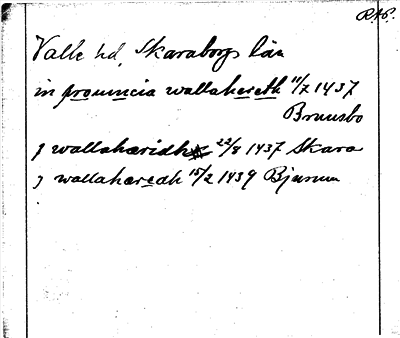 RAP.
Valle hd, Skaraborgs län
in prouincia wallahereth 11/7 1437
Brunsbo
j wallhæridh 22/8 1437 Skara
j wallahæredh 15/2 1439 Bjurum